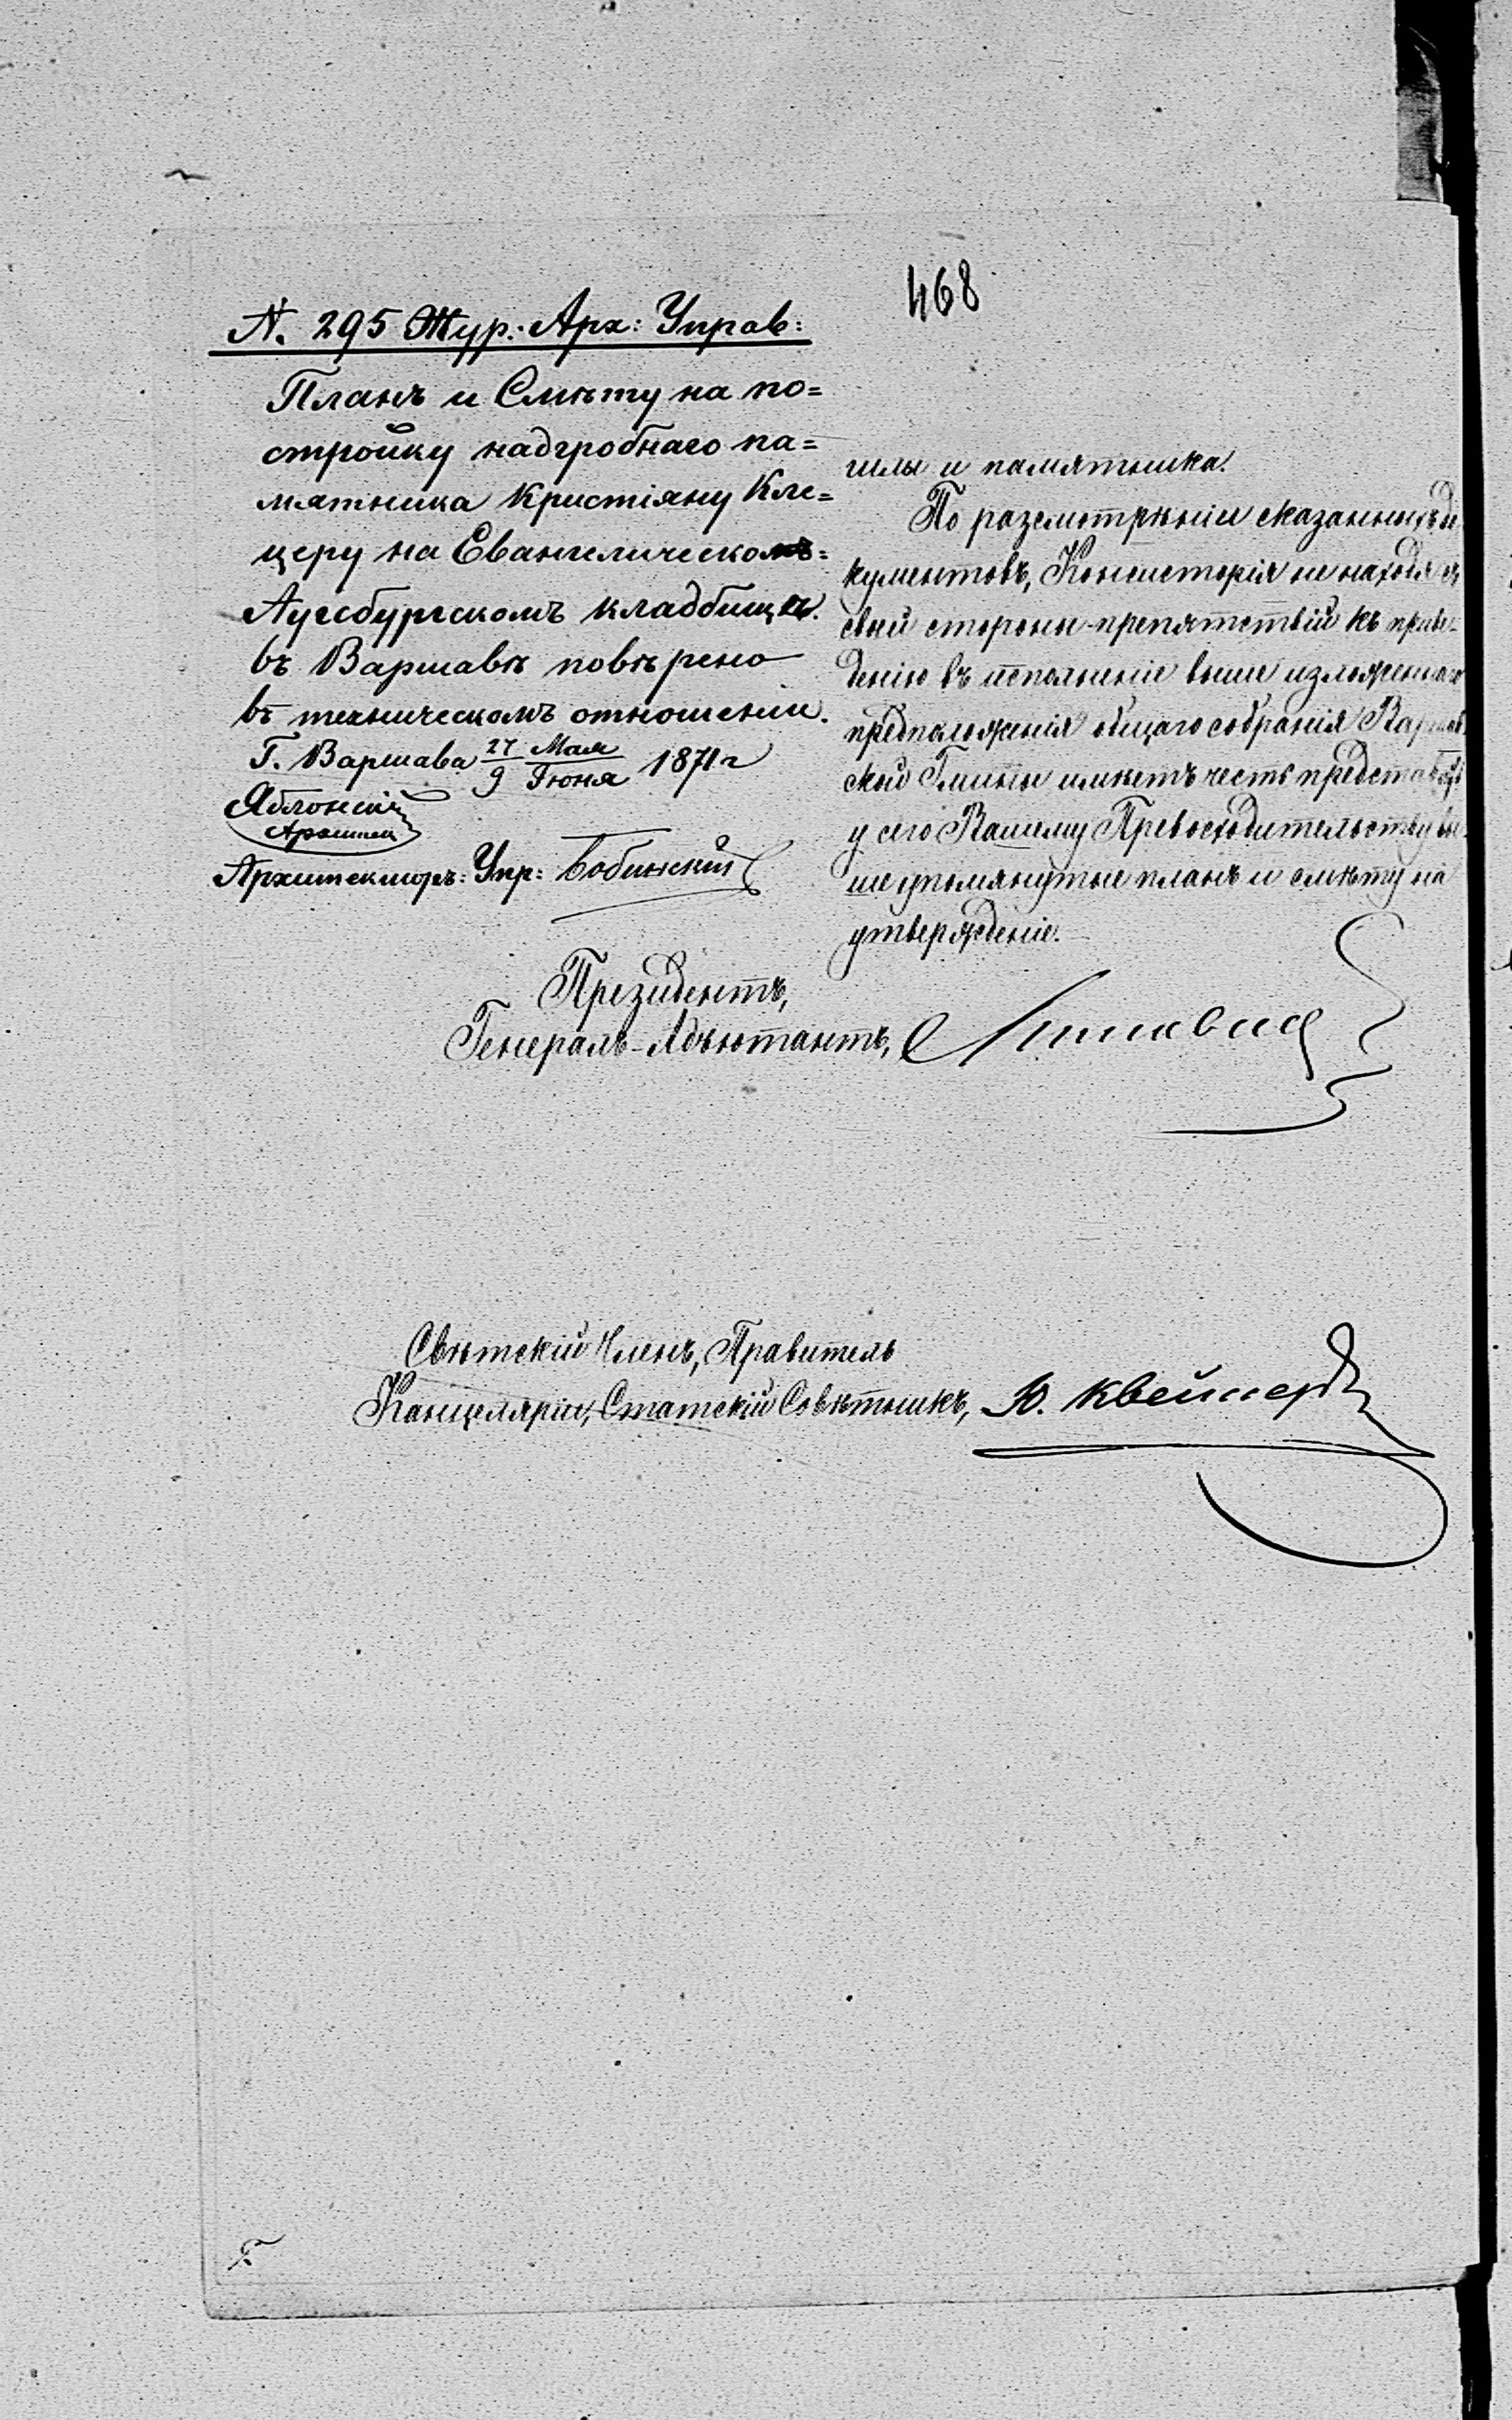 468
N. 295 Жур: Арх: Управ:
Планъ и Смѣту на по=
стройку надгробнаго па=
мятника Кристіяну Кле=
церу на Евангелическомъ=
Аугсбургскомъ кладбищѣ.
въ Варшавѣ повѣрено
въ техническомъ отношеніи.
Г. Варшава 27 Мая / 9 Іюня 1871 г
Яблонскій
Архитекторъ: Упр: Бобинскій
гилы и памятника.
По разсмотрѣніи сказанныхъ до
кументовъ, Консисторія не находя съ
своей стороны препятствій къ приве-
денію въ исполненіе выше изложеннаго
предположенія общаго собранія Варшав
ской Гмины имѣетъ честь представить
у сего Вашему Превосходительству вы
ше упомянутые планъ и смѣту на
утвержденіе.
Президентъ,
Генералъ-Адъютантъ,
Свѣтскій Членъ, Правитель
Канцеляріи, Статскій Совѣтникъ, Ю.